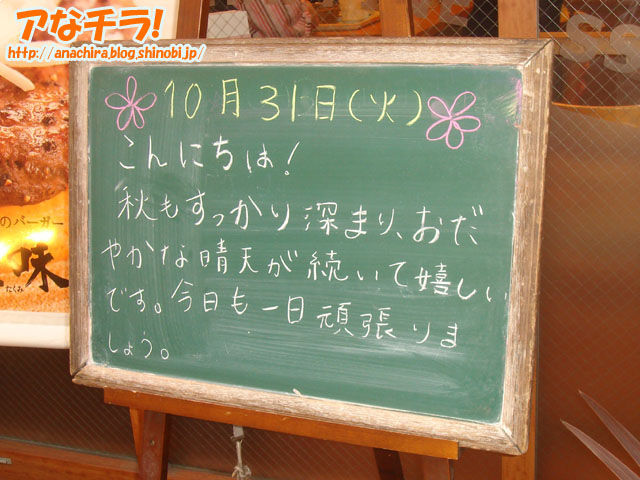 アなチラ!
http://anachira.blog.shinobi.jp/
10月31日(火)
こんにちは!
秋もすっかり深まり、おだ
やかな晴天が続いて嬉しい
です。今日も一日頑張りま
しょう。
のバーガー
味
たくみ